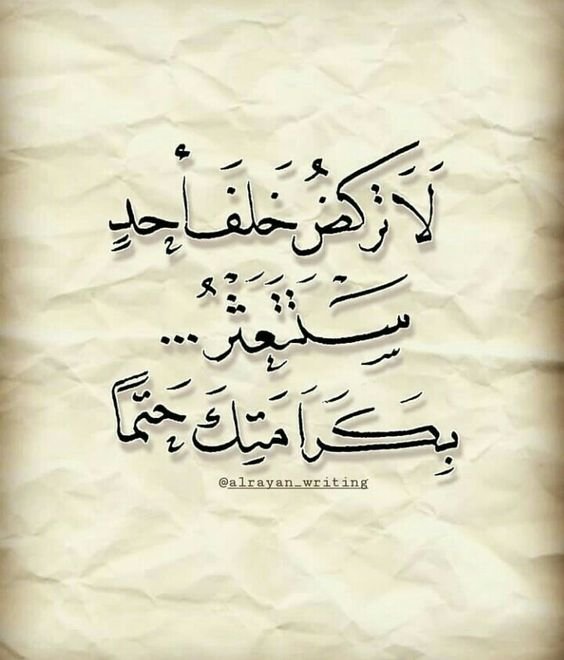 لَا تَركضُ خَلفَ أَحدٍ
سَتَتَعَثْرُ ...
بِكَرَامَتِكَ حَتمًا
@alrayan_writing